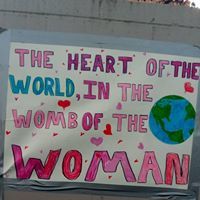 THE HEART OF THE
WORLD, IN THE
WOMB OF THE
WOMAN